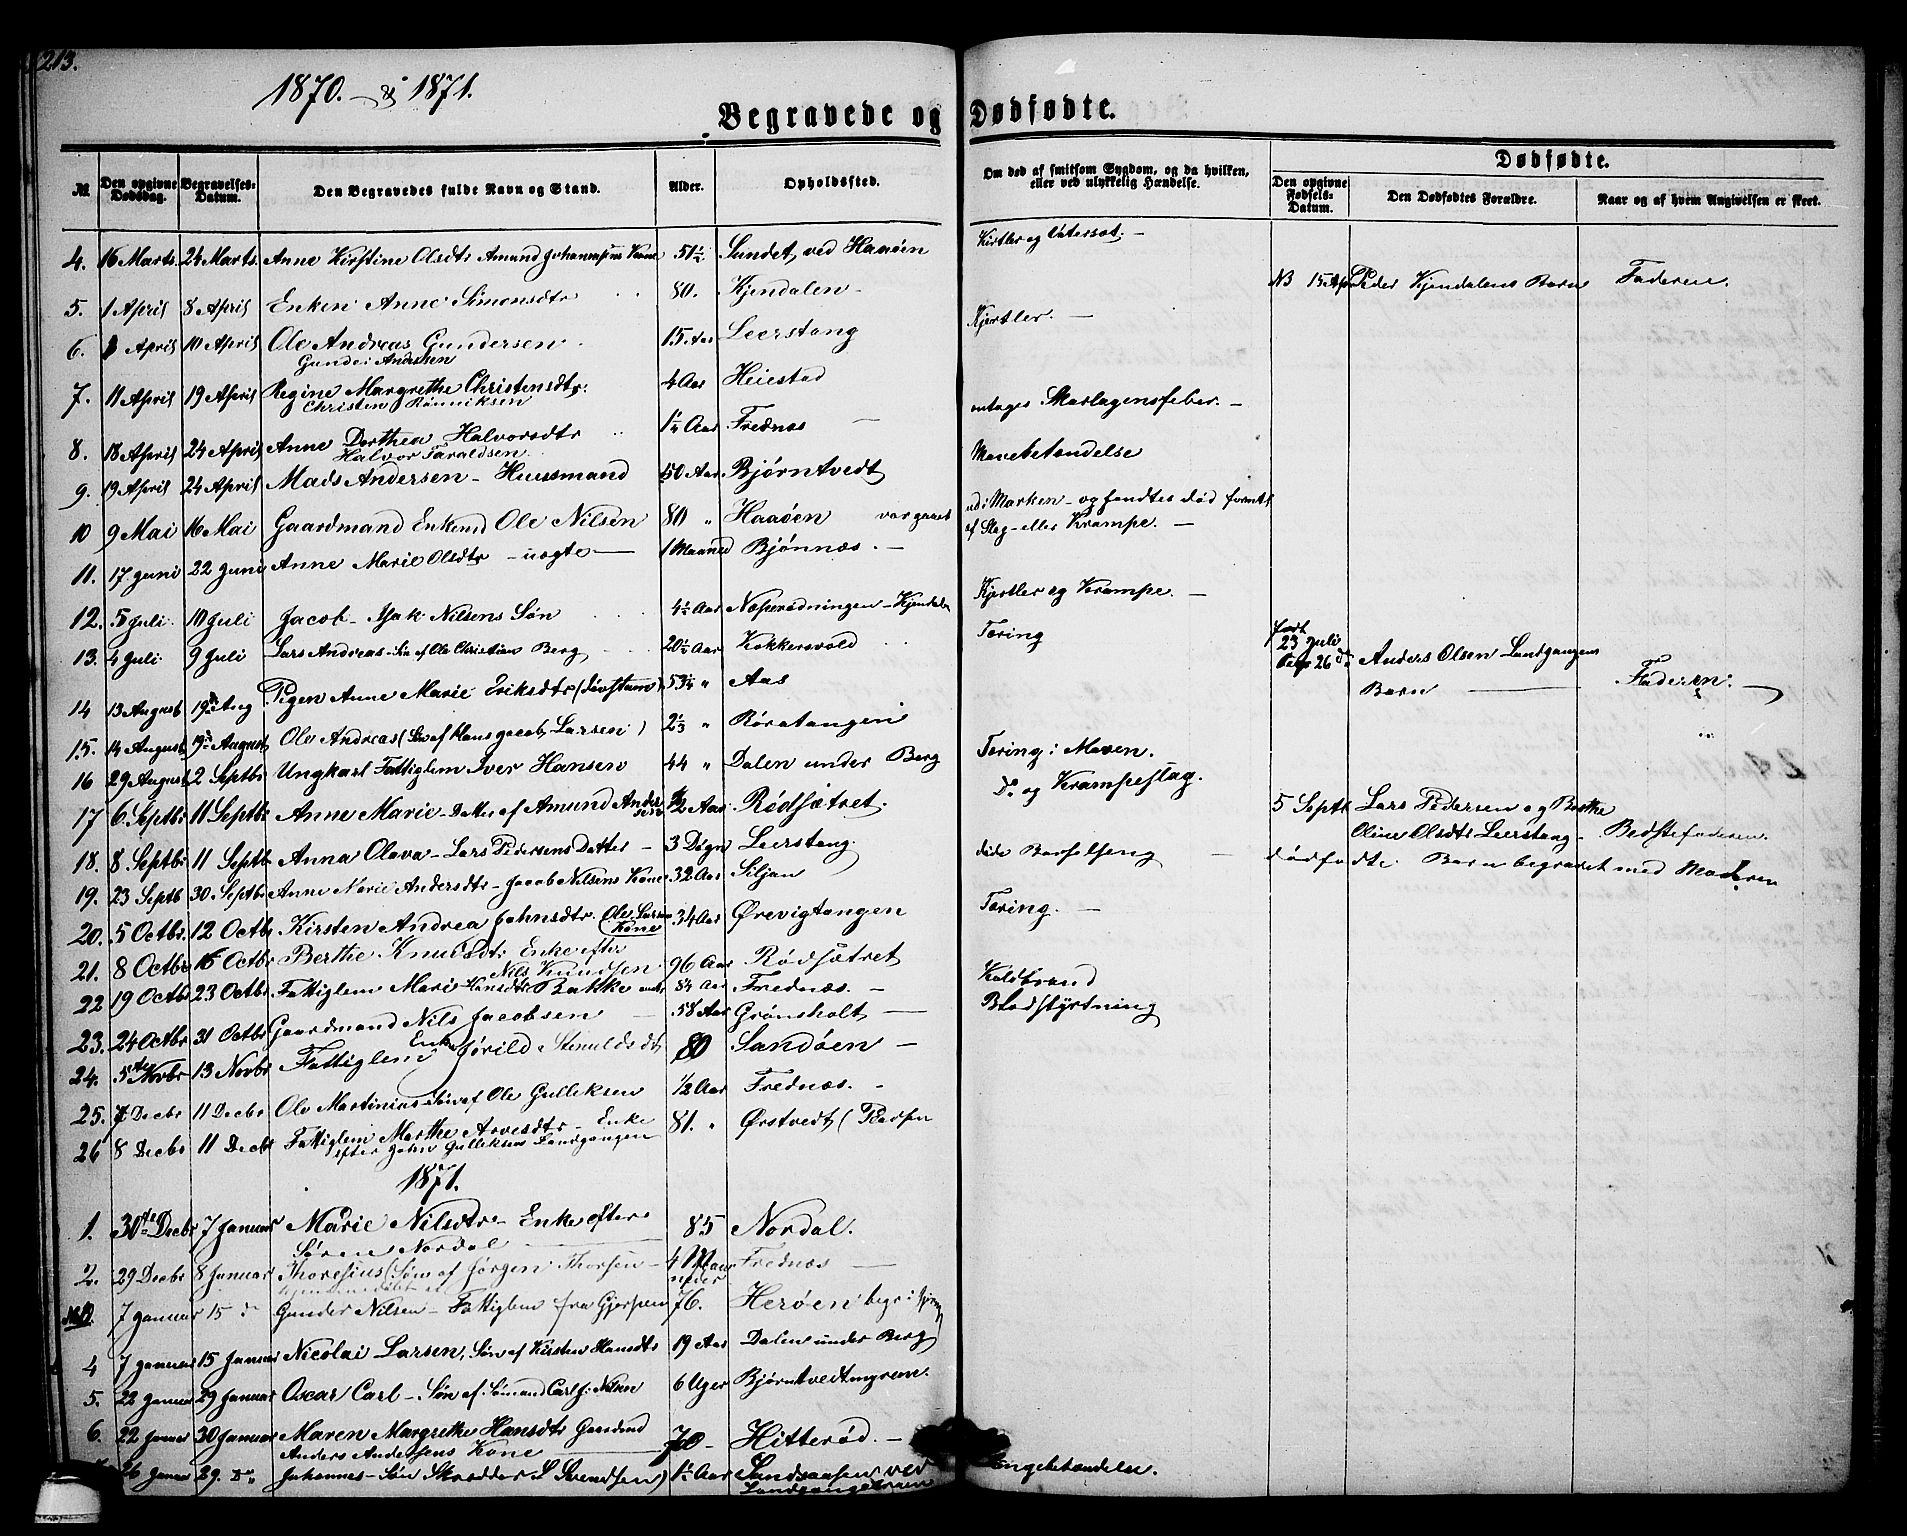 213.
1870. & 1871.
Begravede og Dødfødte.
№. Den opgivne Dødsdag. Begravelses-Datum. Den Begravedes fulde Navn og Stand. Alder. Opholdssted. Om død af smitsom Sygdom, og da hvilken, eller ved ulykkelig Hændelse. Dødfødte.
Den opgivne Fødsels-Datum. Den Dødfødtes Forældre. Naar og af hvem Angivelsen er skeet.
4. 16 Marts 24 Marts. Anne Kirstine Olsdtr Amund Johannesens Kone 51½ Sundet ved Haaöen Kirtler og Vatersot. —
NB 15 Apr Peder Kjendalens Barn Faderen.
5. 1 April 8 April Enken Anne Simonsdtr 80. Kjendalen
6. April 10 April Ole Andreas Gundersen 15 Aar Leerstang Kjertler. —
Gunder Andersen
7. 11 April 19 April Regine Margrethe Christensdtr. 4 Aar Heiestad
Christen Rönniksen
antages Skarlagensfeber. —
8. 18 April 24 April Anne Dorthea Halvorsdtr 1¼ Aar Frednæs — Mavebetændelse
Halvor Taraldsen
9. 19 April 24 April Mads Andersen - Huusmand 50 Aar Bjørntvedt
10 9 Mai 16 Mai Gaardmand Enkemd Ole Nilsen 80 " Haaöen var gaaet ud i Marken - og fandtes död
af Slag - eller Krampe. —
11. 17 Juni 22 Juni Anne Marie Olsdtr - uægte — 1 Maaned Bjönnæs. —
12. 5 Juli 10 Juli Jacob - Isak Nilsens Søn 4½ Aar Næperødningen - Kjendalen Kjertler og Krampe. —
13. 4 Juli. 9 Juli Lars Andreas - Sön af Ole Christian Berg 20½ Aar Kokkersvold Tæring
født 23 Juli
begr 26 do Anders Olsen Landgangens
Barn — Faderen. —
14 13 August 19 Aug Pigen Anne Marie Eriksdtr 53¼ " Aas
15. 14 August 19 August Ole Andreas (Søn af Hans Jacob Larsen) 2⅓ " Röratangen
16 29 August 2 Septbr Ungkarl Fattiglem Iver Hansen 44 " Dalen under Berg Tæring i Maven.
17 6 Septbr 11 Septbr Anne Marie - Datter af Amund Andersen ½ Aar Rødsætret. Do og Krampeslag.
18. 8 Septbr 11 Septb Anna Olava - Lars Pedersens Datter — 3 Døgn Leerstang.
5 Septb Lars Pedersen og
Oline Olsdtr Leerstang - Bedstefaderen.
19. 23 Septb 30 Septbr Anne Marie Andersdtr - Jacob Nilsens Kone 32 Aar Siljan döde Barselseng — dödfödte. Barn begravet med Moderen
20. 5 Octbr. 12 Octb Kirsten Andrea Johnsdtr. Ole Larsens Kone 34 Aar Ørevigtangen Tæring. —
21. 8 Octbr 15 Octbr Berthe Knudsdtr. Enke efter 96 Aar Rödsætret
Nils Knudsen
22 19 Octbr 23 Octbr Fattiglem Mari Hansdtr Bakke 84 Aar Frednæs. — Koldbrand
23. 24 Octbr 31 Octbr Gaardmand Nils Jacobsen — 58 Aar Grönsholt — Blodstyrtning
24. 5te Novbr 13 Novbr Fattiglem Enke Jörild 80 Sandöen —
25. 7 Decbr 11 Decbr Ole Martinius - Søn af Ole Gulleksen ½ Aar Frednæs. —
26 8 Decbr 11 Decbr Fattiglem Marthe Arvesdtr - Enke 81. " Ørstvedt
efter John Gulleksen Landgangen
1871.
1. 30te Decbr 7 Januar Marie Nilsdtr - Enke efter 85 Nordal.
Søren Nordal —
2. 29 Decbr 8 Januar Thoresius (Søn af Jörgen Thorsen — 4 Maaneder Frednæs —
7 Januar 15 do Gunder Nilsen - Fattiglem fra Gjerpen 76. Heröen begr. i
4 7 Januar 15 Januar Nicolai Larsen, Søn af Kirsten Hansdtr 19 Aar Dalen under Berg
5. 22 Januar 29 Januar Oscar Carl - Søn af Sömand Carl J. Nilsen 6 Uger Bjørntvedtmyren.
6. 22 Januar 30 Januar Maren Margrethe Hansdtr Gaardmd 70 — Hitteröd. —
Anders Andersens Kone —
26 Januar 29. Do Johannes - Sön Skrædder L Svendsen) 1½ Aar Sandsaasen ved
Landgangekroen
Lungebetændelse.